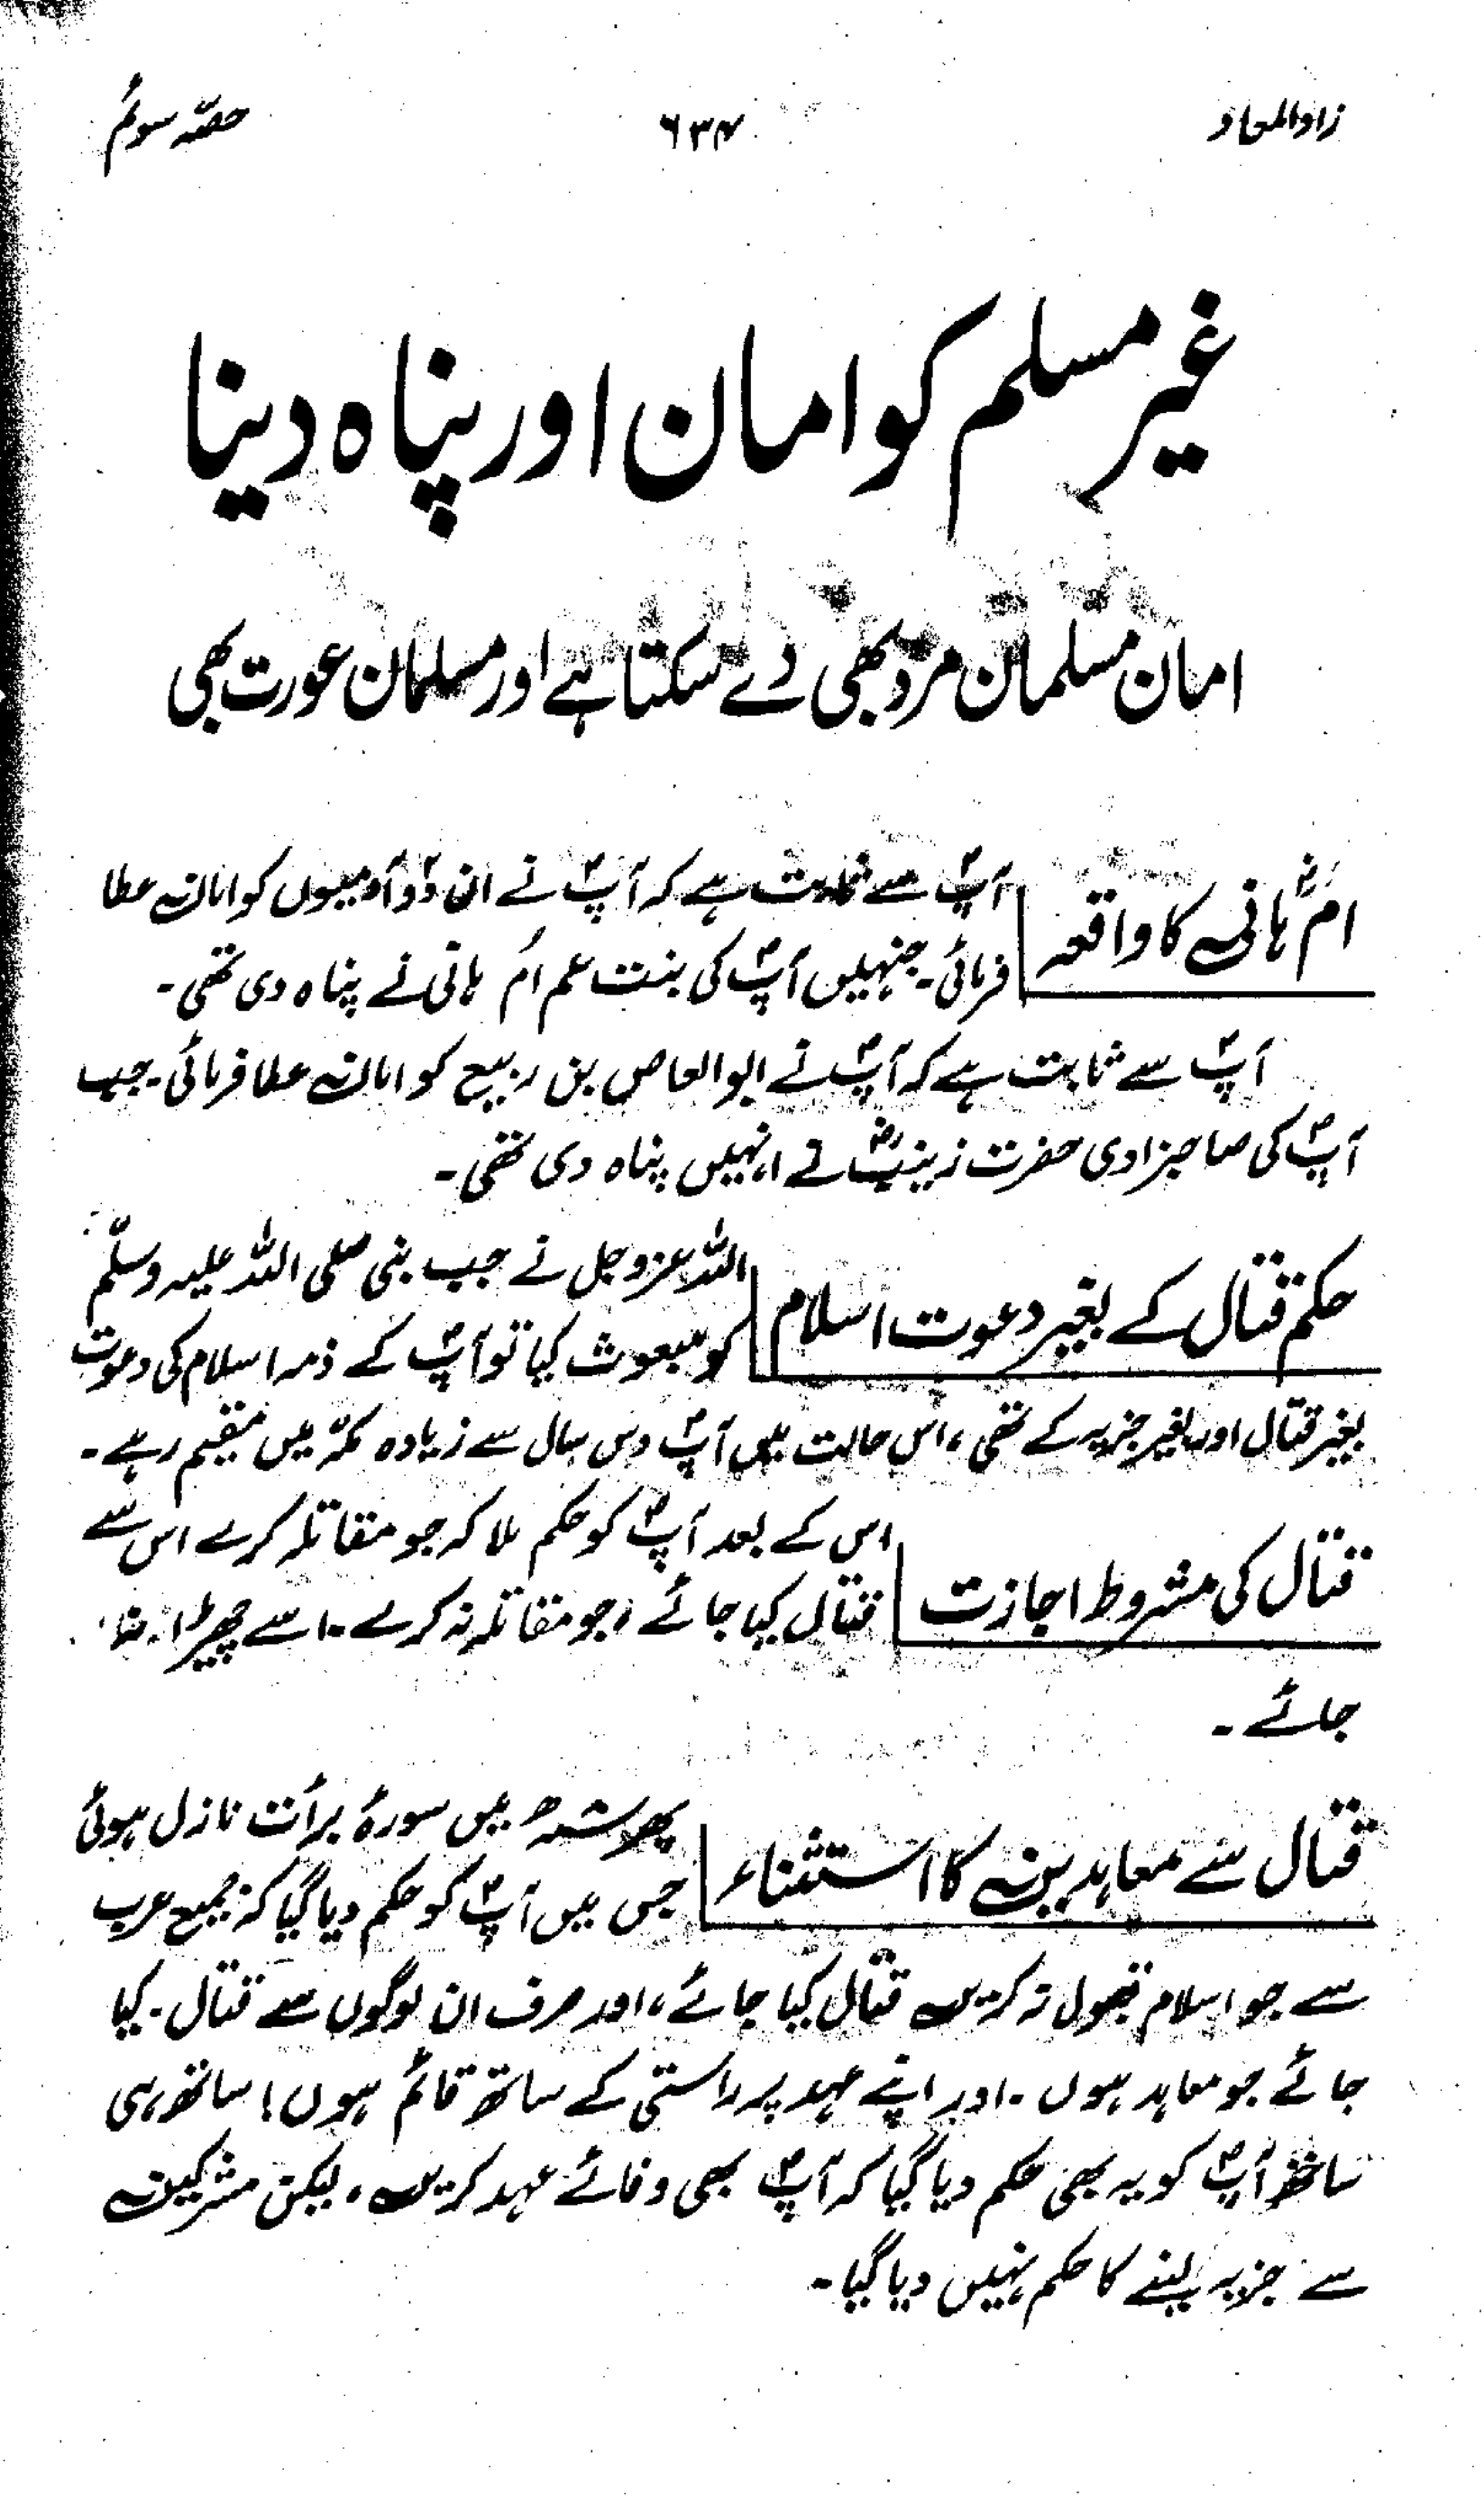 زاد المعاد
۶۳۴
حصّہ سوئم
غیر مسلم کو امان اور پناہ دینا
امان مسلمان مرد بھی دے سکتا ہے اور مسلمان عورت بھی
امِّ ہانی کا واقعہ
آپؐ سے ثابت ہے کہ آپؐ نے ان دو آدمیوں کو امان عطا
فرمائی۔ جنہیں آپؐ کی بنت عم ام ہانی نے پناہ دی تھی۔
آپؐ سے ثابت ہے کہ آپؐ نے ابوالعاص بن ربیع کو امان عطا فرمائی۔ جب
آپؐ کی صاحبزادی حضرت زینبؓ نے انہیں پناہ دی تھی۔
حکم قتال کے بغیر دعوت اسلام
اللہ عزوجل نے جب نبی صلی اللہ علیہ وسلّم
کو مبعوث کیا تو آپؐ کے ذمہ اسلام کی دعوت
بغیر قتال اور بغیر جزیہ کے تھی، اس حالت میں آپؐ دس سال سے زیادہ مکہّ میں مقیم رہے۔
قتال کی مشروط اجازت
اس کے بعد آپؐ کو حکم ملا کہ جو مقاتلہ کرے اس سے
قتال کیا جائے، جو مقاتلہ نہ کرے۔ اسے چھوڑ
جائے۔
قتال سے معاہدین کا استثناء
پھر ۸ھ میں سورۂ برأت نازل ہوئی
جس میں آپؐ کو حکم دیا گیا کہ جمیع عرب
سے جو اسلام قبول نہ کریں قتال کیا جائے، اور صرف ان لوگوں سے قتال۔ کیا
جائے جو معاہد ہوں۔ اور اپنے عہد پر راستی کے ساتھ قائم ہوں! ساتھ ہی
ساتھ آپؐ کو یہ بھی حکم دیا گیا کہ آپؐ بھی وفائے عہد کریں، لیکن مشرکین
سے جزیہ لینے کا حکم نہیں دیا گیا۔